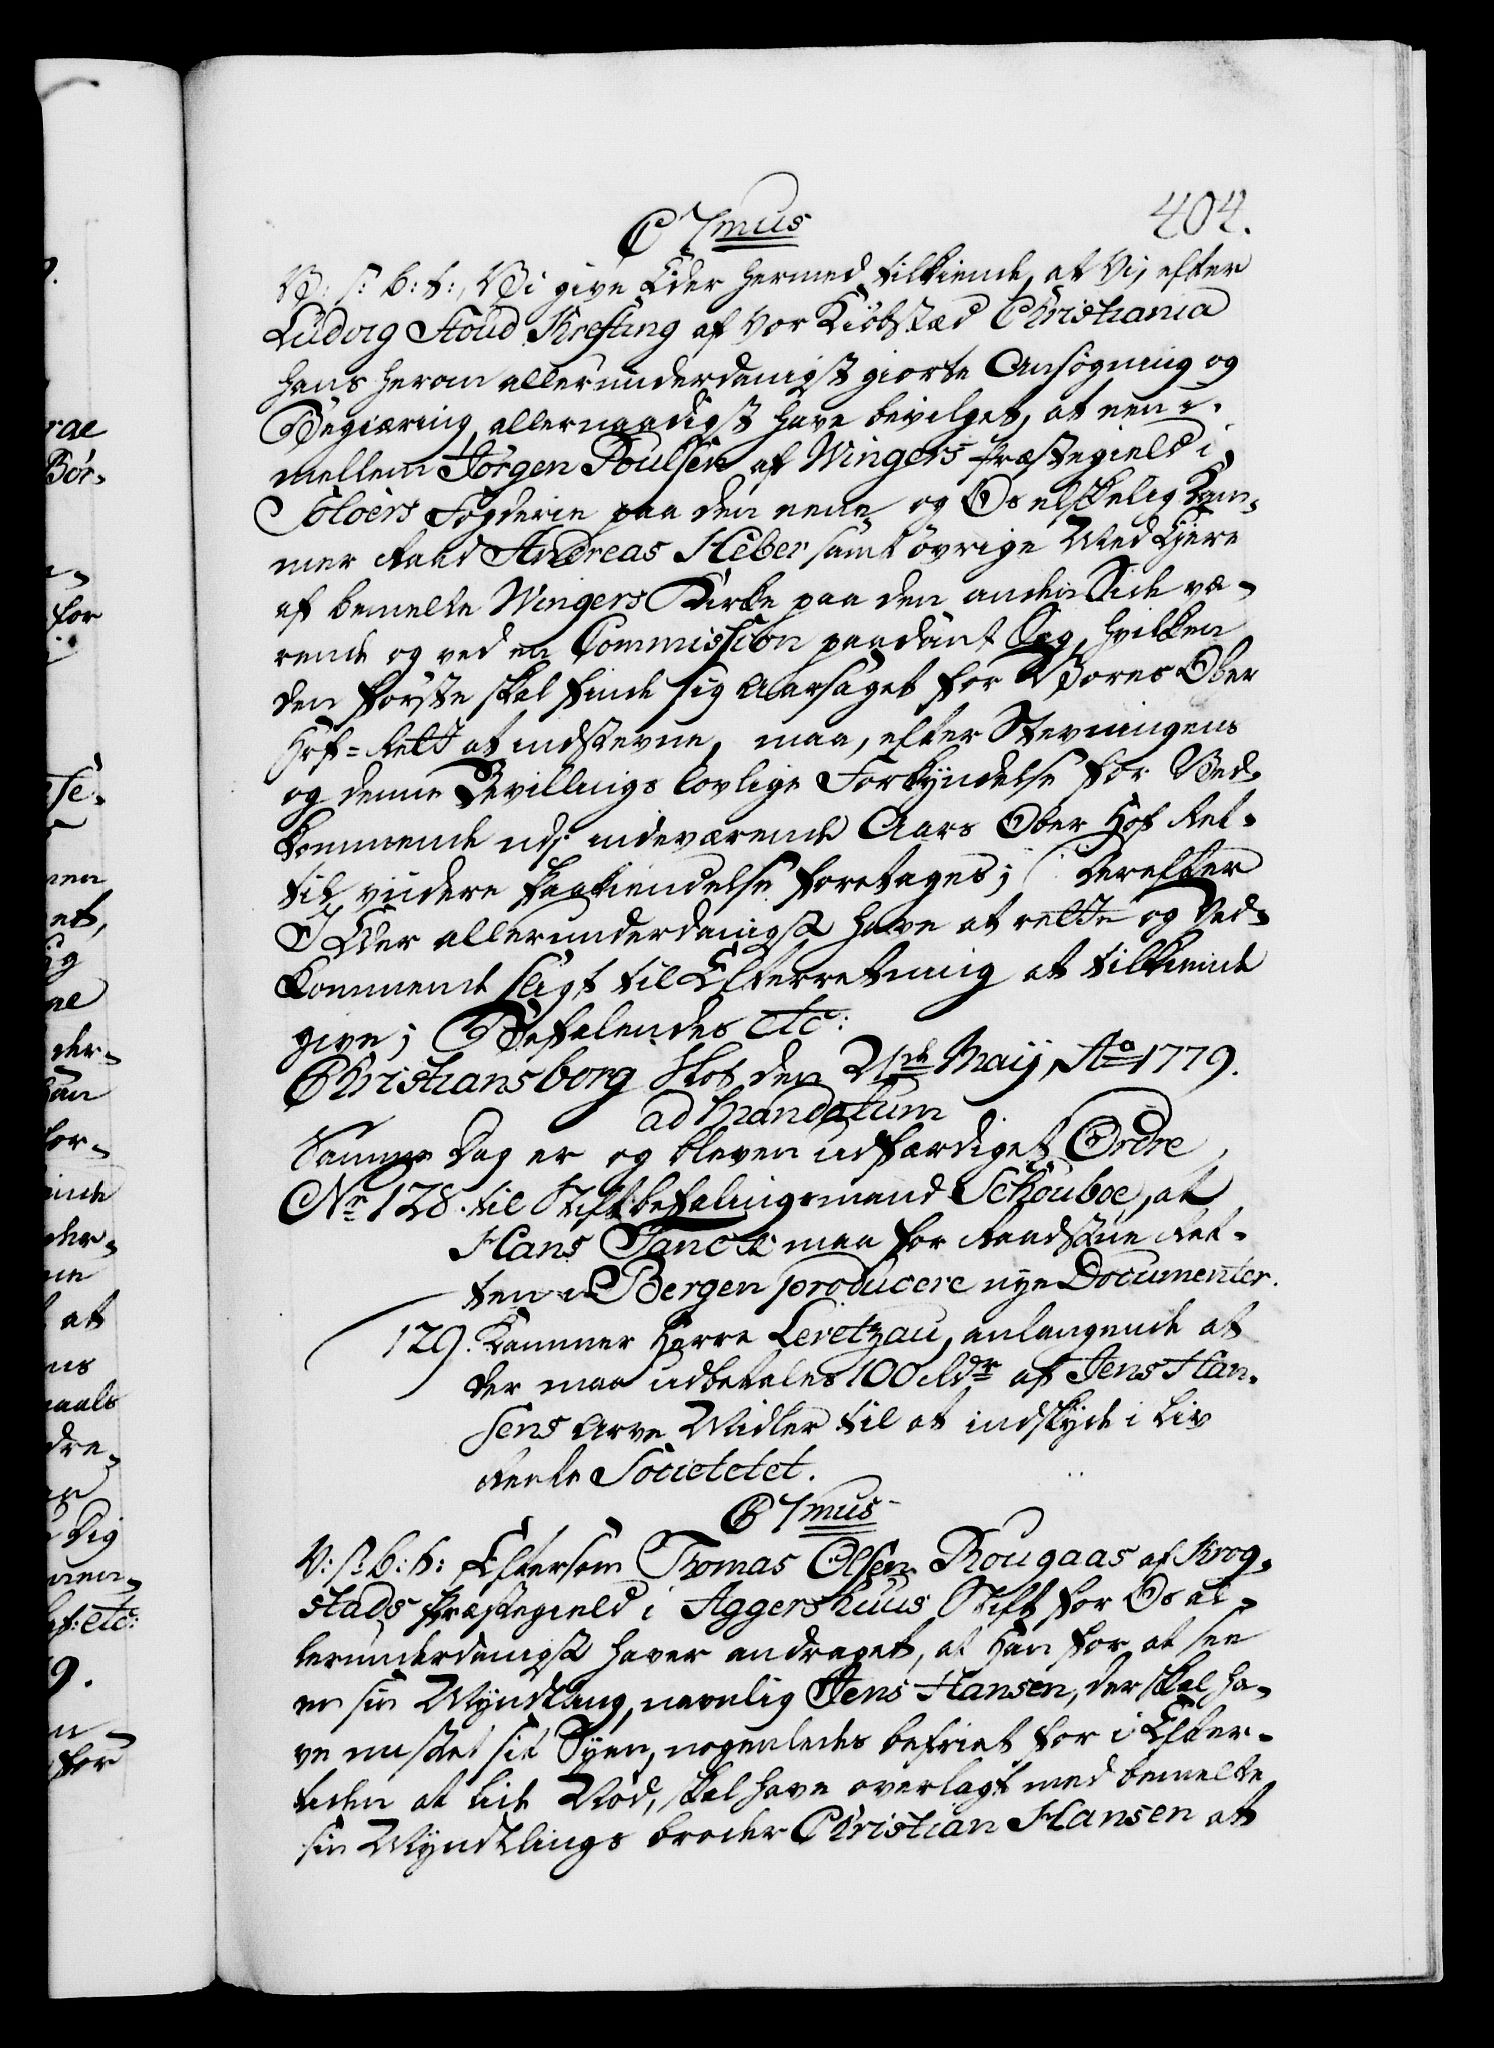 404.
C 7mus
V: S: b: t:, Vi give Eder hermed tilkiende, at Vi, efter
Ludvig Stoud Krefting af Vor Kiöbstæd Christiania
hans herom allerunderdanigst giorte Ansøgning og
Begiæring, allernaadigst have bevilget, at een i-
mellem Jörgen Poulsen af Wingers Præstegield i
Soloërs Fogderie paa den eene, og Os elskelig Kam-
mer Raad Andreas Heber samt övrige Med Eyere
af bemelte Wingers Kirke paa den anden Side væ-
rende og ved en Commission paadömt Sag, hvilken
den förste skal finde sig aarsaget for Vores Ober
Hof-Rett at indstevne, maa, efter Stevningens
og denne Bevillings lovlige Forkyndelse for Ved-
kommende udi indeværende Aars Ober Hof Ret
til viidere Paakiendelse foretages; Derefter
I Eder allerunderdanigst have at rette og Ved-
kommende sligt til Efterretning at tilkiende
give; Befalendes etc:
Christiansborg Slot den 21de Maij Ao 1779.
ad mandatum
Samme Dag er og bleven udfærdiget Ordre
No 128. til Stiftbefalingsmand Schouboe, at
Hans Tanck maa for Raadstue Ret-
ten i Bergen producere nye Documenter.
129. Kammer Herre Levetzau, anlangende at
der maa udbetales 100 Rdr af Jens Han-
sens Arve Midler til at indskyde i Liv
Rente Societetet.
C 7mus
V: S: b: t: Eftersom Thomas Olsen Rougaas af Krog-
stads Præstegield i Aggershuus Stift for Os al-
lerunderdanigst haver andraget, at han for at see
en sin Myndling, navnlig Jens Hansen, der skal ha-
ve mistet sit Syen, nogenledes befriet for i Efter-
tiden at lide Nöd, skal have overlagt med bemelte
sin Myndlings broder Christian Hansen at